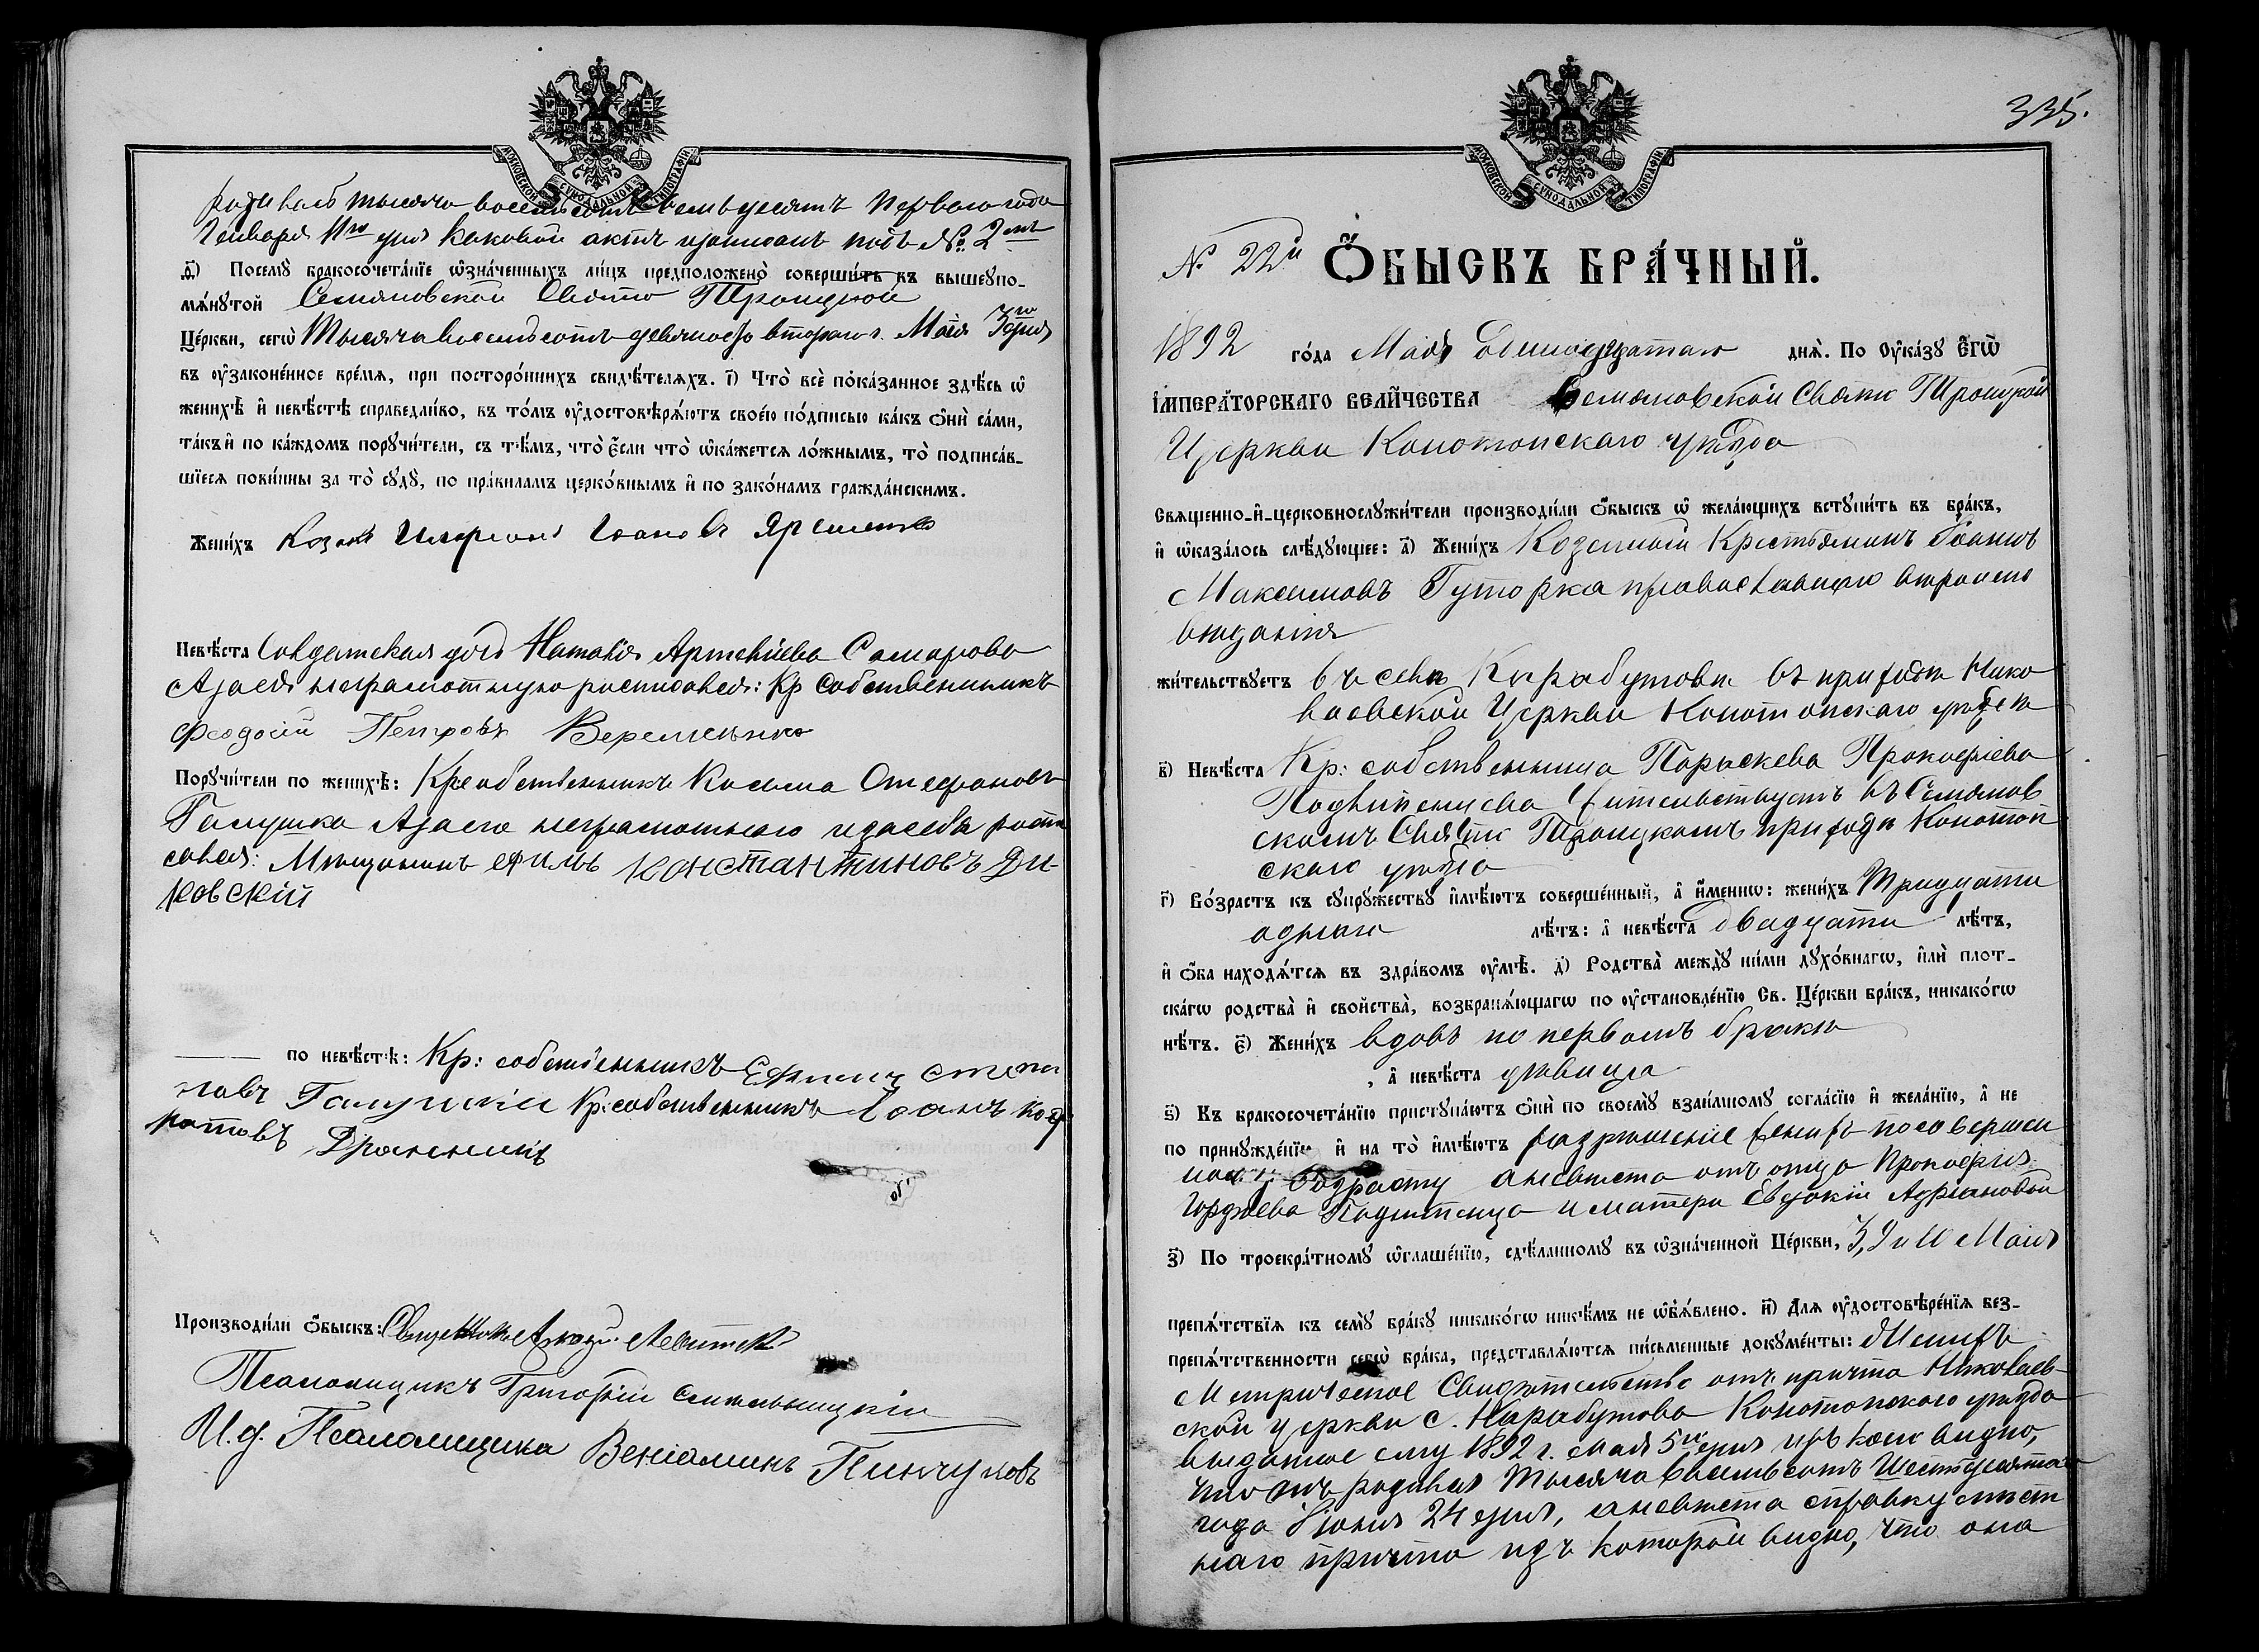 МОСКОВСКОЙ СУНОДАЛЬНОЙ ТИПОГРАФІИ
родилась тысяча восемьсотъ семьдесятъ перваго года
Генваря 11го дня каковой актъ записанъ подъ № 2мъ
д҃) Посемꙋ̀ бракосочета́нїе ѡ҆зна́ченныхъ ли́цъ предположено̀ соверши́ть въ вышеꙋпо-
мѧ́нꙋтой Семяновской Свято Троицкой
Це́ркви, сегѡ̀ Тысяча восемьсотъ девяносто втораго г. Мая 3го дня
въ ᲂу҆зако́ненное вре́мѧ, при посторо́ннихъ свидѣ́телѧхъ. і҃) Что̀ всѐ пока́занное здѣ́сь ѡ҆
женихѣ̀ и҆ невѣ́стѣ справедли́во, въ то́мъ ᲂу҆достовѣрѧ́ютъ свое́ю по́дписью ка́къ ѻ҆нѝ са́ми,
та́къ и҆ по ка́ждомъ порꙋчи́тели, съ тѣ́мъ, что̀ є҆́сли что̀ ѡ҆ка́жетсѧ ло́жнымъ, то̀ подписа́в-
шїесѧ пови́нны за то̀ сꙋдꙋ̀, по пра́виламъ церко́внымъ и҆ по зако́намъ гражда́нскимъ.
Жени́хъ Козакъ Иларіонъ Іоановъ Яременко
Невѣ́ста Солдатская дочь Наталія Артеміева Самарова
А за ея неграмотную росписался: Кр собственникъ
Феодосій Петровъ Веременко
Порꙋчи́тели по женихѣ̀: Кр собственникъ Косьма Стефановъ
Галушка А за его неграмотнаго и за себя роспи
сался: Мещанинъ Филь Константиновъ Ди-
ковскій
по невѣ́стѣ: Кр: собственникъ Ефимъ Степа
новъ Галушки Кр: собственникъ Іоанъ Конд
ратовъ Дранникъ
Производи́ли ѻ҆́быскъ: Священникъ Левитскій
Псаломщикъ Григорій Смельницкій
И. д. Псаломщика Веніаминъ Пинчуковъ
335.
МОСКОВСКОЙ СУНОДАЛЬНОЙ ТИПОГРАФІИ
№ 22й Ѻ҆́БЫСКЪ БРА́ЧНЫЙ.
1892 го́да Мая Одинадцатаго днѧ̀. По Оу҆ка́зꙋ Є҆гѡ̀
І҆МПЕРА́ТОРСКАГО ВЕЛИ́ЧЕСТВА Семяновской Свято Троицкой
Церкви Конотопскаго уезда
Свѧще́нно-и҆-церковнослꙋжи́тели производи́ли ѻ҆́быскъ ѡ҆ жела́ющихъ встꙋпи́ть въ бра́къ,
и҆ ѡ҆каза́лось слѣ́дꙋющее: а҃) Жени́хъ Козенный Крестьянинъ Іоанъ
Максимовъ Гуторка православнаго вероиспо
ведания
жи́тельствꙋетъ въ селе Карабутове въ приходе Нико
лаевской Церкви Конотопскаго уезда
в҃) Невѣ́ста Кр: собственница Параскева Прокофіева
жительствуетъ въ Семянов
скомъ Свято Троицкомъ приходе Конотоп
скаго уезда
г҃) Во́зрастъ къ сꙋпрꙋ́жествꙋ и҆мѣ́ютъ соверше́нный, а҆ и҆́меннѡ: жени́хъ Тридцати
одного лѣ́тъ: а҆ невѣ́ста двадцати лѣ́тъ,
и҆ ѻ҆́ба нахо́дѧтсѧ въ здра́вомъ ᲂу҆мѣ̀. д҃) Родства̀ междꙋ̀ ни́ми дꙋхо́внагѡ, и҆лѝ плот-
ска́гѡ родства̀ и҆ свойства̀, возбранѧ́ющагѡ по ᲂу҆становле́нїю Св. Це́ркви бра́къ, никако́гѡ
нѣ́тъ. є҃) Жени́хъ вдовъ по первомъ браке
, а҆ невѣ́ста девица
ѕ҃) Къ бракосочета́нїю пристꙋпа́ютъ ѻ҆нѝ по своемꙋ̀ взаи́мномꙋ согла́сїю и҆ жела́нїю, а҆ не
по принꙋжде́нїю и҆ на то̀ и҆мѣ́ютъ разрешеніе жених по совершен
возрасту а невеста отъ отца Прокофія
Гордеева и матери Евдокіи Адриановой
з҃) По троекра́тномꙋ ѡ҆глаше́нїю, сдѣ́ланномꙋ въ ѡ҆зна́ченной Це́ркви, 3, 9 и 10 Мая
препѧ́тствїѧ къ семꙋ̀ бра́кꙋ никако́гѡ никѣ́мъ не ѡ҆б̾ѧ́влено. и҃) Для ᲂу҆достовѣре́нїѧ без-
препѧ́тственности сегѡ̀ бра́ка, представлѧ́ютсѧ пи́сьменные докꙋме́нты: Женихъ
Метрическое Свидетельство отъ причта Николаев-
ской церкви с. Карабутова Конотопскаго уезда
выданное ему 1892 г. мая 5го дня изъ коего видно,
что онъ родился Тысяча восемьсотъ Шестдесятаго
года Іюня 24 дня, а невеста справку мест
наго причта изъ которой видно, что она